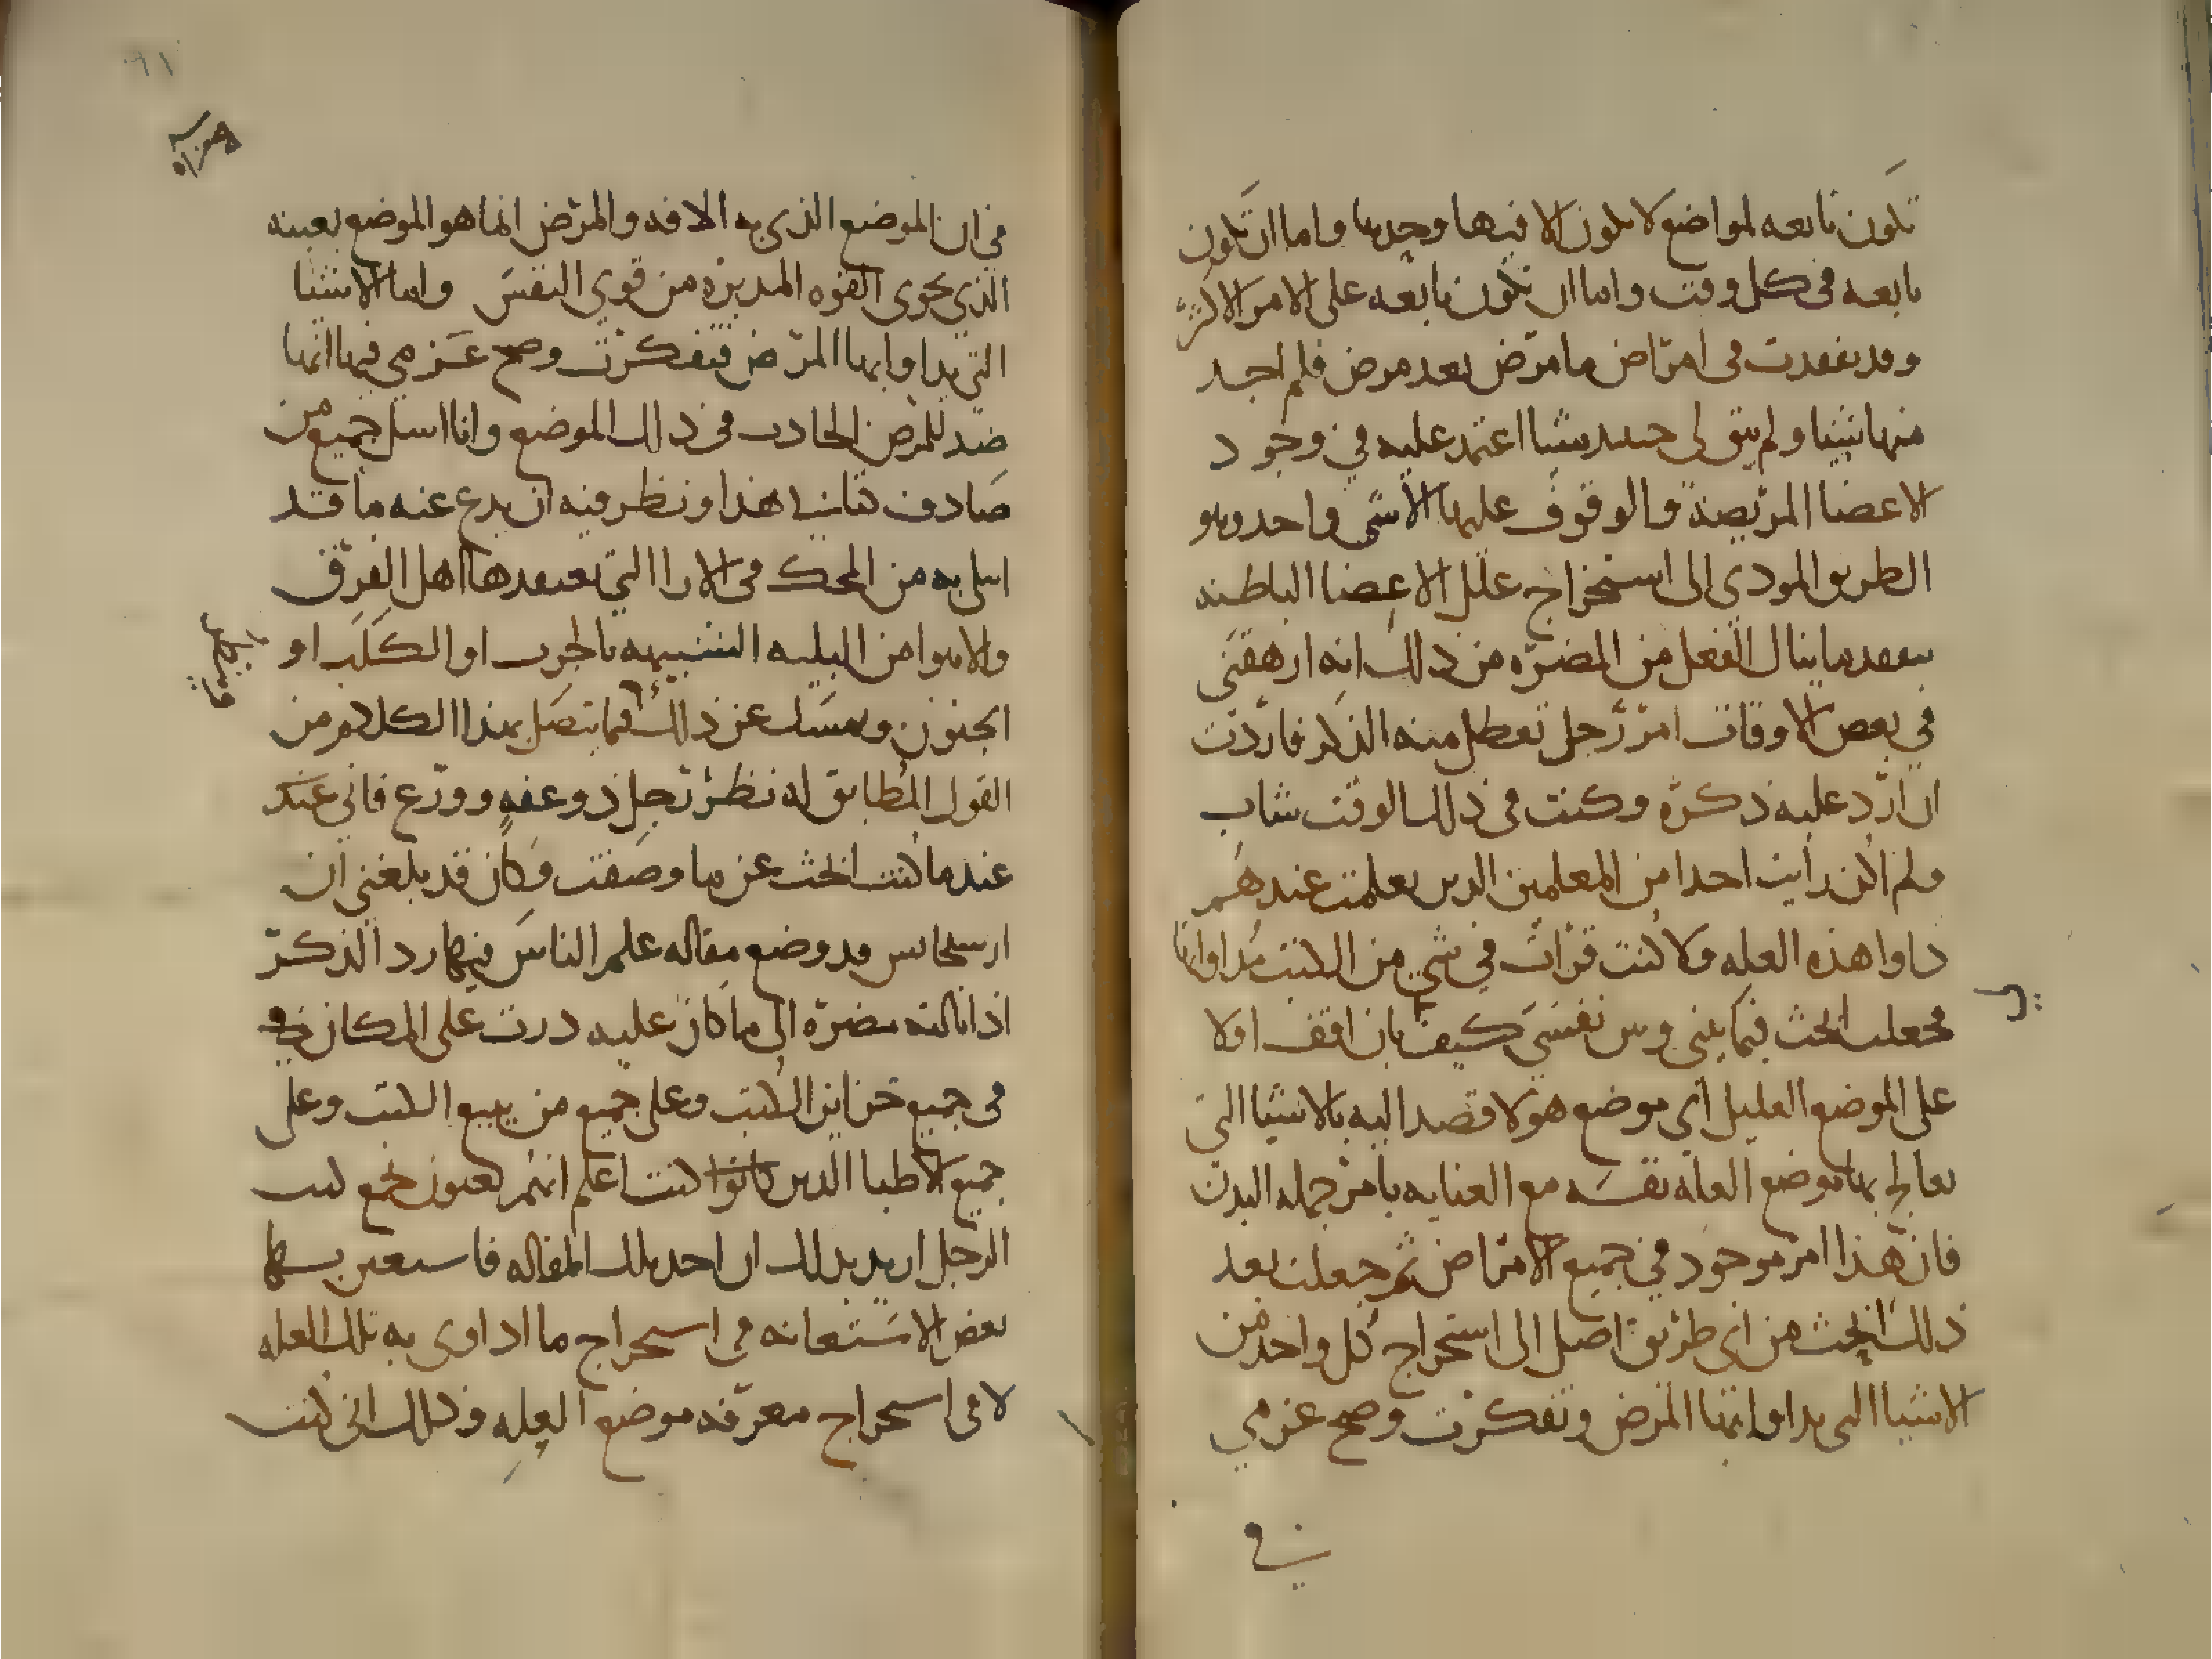 تكون تابعه لمواضع لا تكون الا فيها وحدها واما ان تكون
تابعه فى كل وقت واما ان تكون تابعه على الامر الاكثر
وقد تفقدت فى امراض ما مرض بعد مرض فلم اجد
منها شيا ولم يبق لى حينيد شيا اعتمد عليه في وجود
الاعضا المريضة والوقوف عليها الا شى واحد وهو
الطريق المودى الى استخراج علل الاعضا الباطنه
بتفقد ما ينال الفعل من المضره من ذلك انه ارهقنى
في بعض الاوقات امر رجل تعطل منه الذكر فاردت
ان ارد عليه ذكره وكنت فى ذلك الوقت شاب
ولم اكن رايت احدا من المعلمين الدين تعلمت عندهم
داوا هذه العله ولا كنت قرات في شى من الكتب مداواتها
فجعلت ابحث فيما بينى وبين نفسي كيف بان اقف اولا
على الموضع العليل اى موضع هو لاقصد اليه بالاشيا التى
يعالج بها موضع العله نفسه مع العنايه بامر جمله البدن
فان هذا امر موجود في جميع الامراض ثم جعلت بعد
ذلك ابحث من اى طريق اصل الى استخراج كل واحد من
الاشيا التى يداوا بها المرض وتفكرت وصح عزمي
في
في ان الموضع الذى به الافه والمرض انما هو الموضع بعينه
الذي يحوى القوه المدبره من قوي النفس واما الاشيا
التى يداوا بها المرض فتفكرت وصح عزمي فيها انها
ضد للمرض الحادث في ذلك الموضع وانا اسل جميع من
صادف كتابى هذا ونظر فيه ان يدع عنه ما قد
ابلى به من المحك فى الارا التي يعتقدها اهل الفرق
والاهوا من البليه الشبيهه بالجرب او الكلب او
الجنون ويمسك عن ذلك فيما يتصل بهذا الكلام من
القول المطابق له نظر رجل ذو عفه وورع فاني عند
عندما كنت ابحث عن ما وصفت وكان قد بلغنى ان
ارسحانس قد وضع مقاله علم الناس فيها رد الذكر
اذا نالته مضره الى ما كان عليه درت على المكان في
فى جميع خزاين الكتب وعلى جميع من يبيع الكتب وعلى
جميع الاطبا الدين كانوا كنت اعلم انهم يعنون بجمع كتب
الرجل اريد بدلك ان اجد تلك المقاله فاستعين بها
بعض الاستعانه فى استخراج ما اداوى به تلك العله
لا فى استخراج معرفه موضع العله وذلك انى كنت